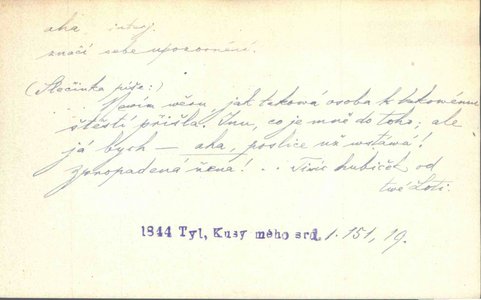 aha interj.
značí sebe upozornění.
(Slečinka píše:)
Nevím věru, jak taková osoba k takovému
štěstí přišla. Inu, co je mně do toho; ale
já bych — aha, poslice už vstává!
Zpropadená žena! . . Tisíc hubiček od
tvé Loti.
1844 Tyl, Kusy mého srd. 1. 151, 19.